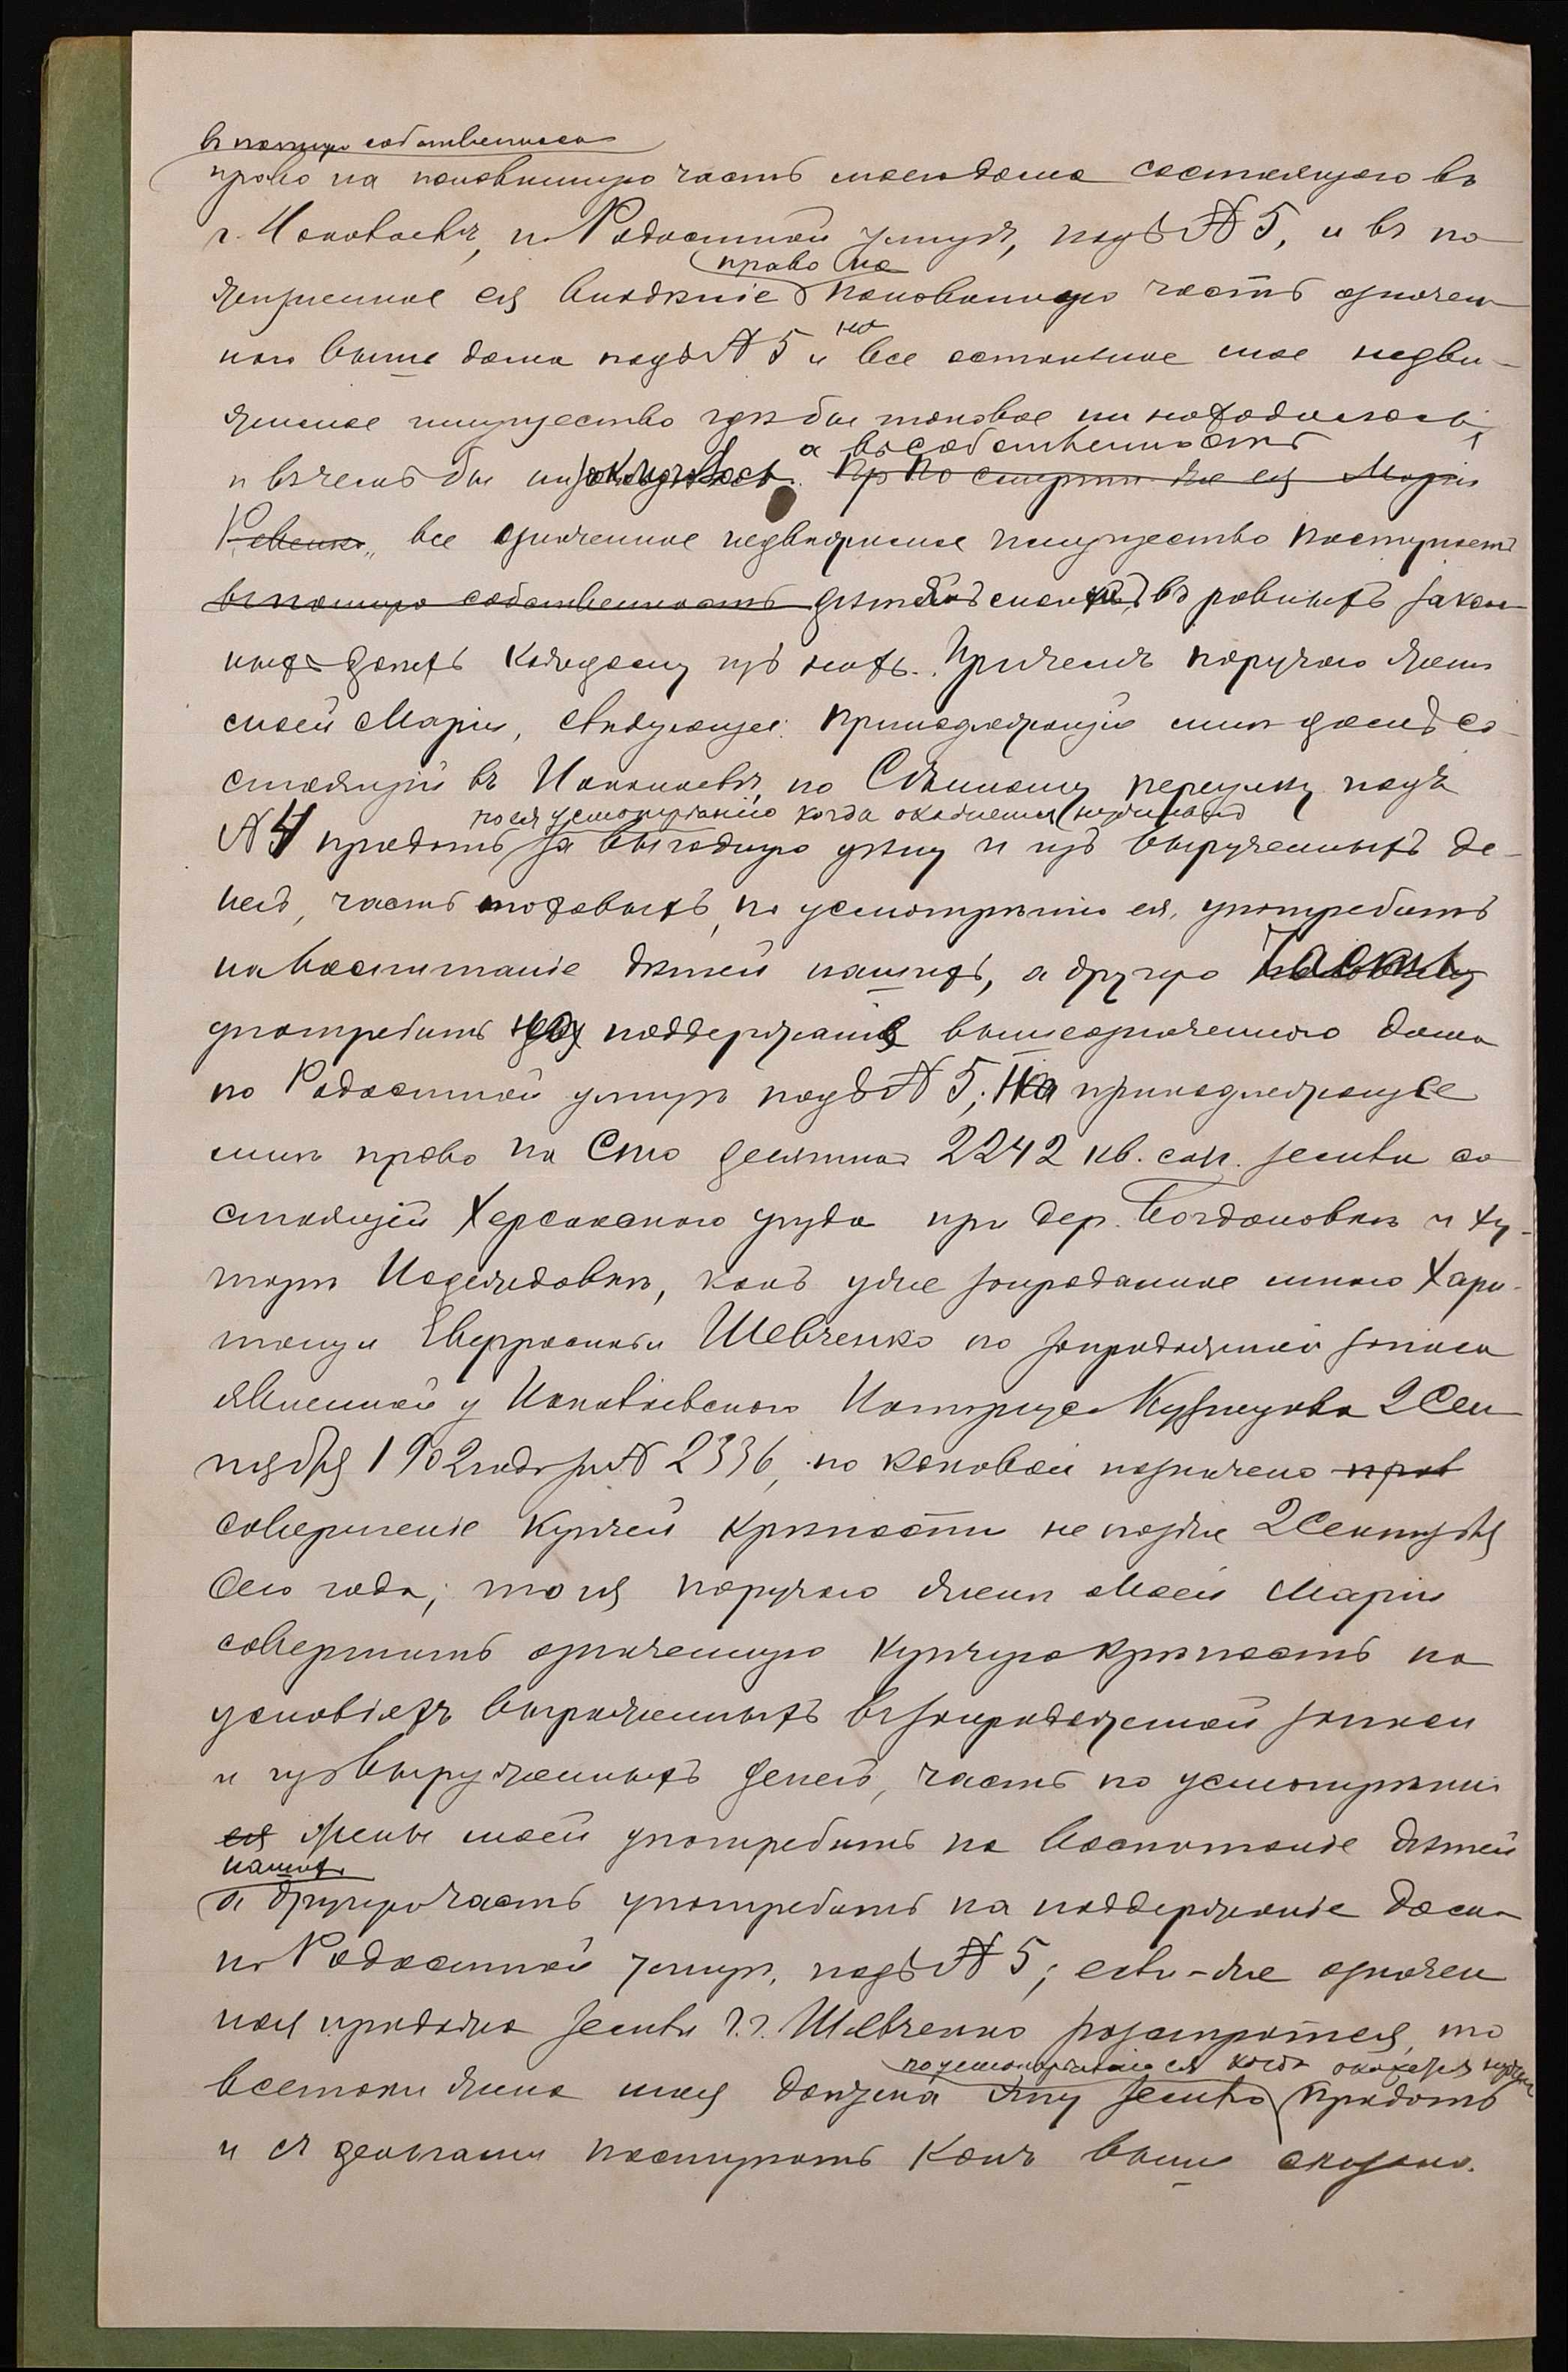 въ полную собственность
право на половинную часть моего дома состоящаго въ
г. Николаевѣ, по Радостной улицѣ, подъ № 5, и въ по
право на
жизненное ея владѣніе половинную часть означен
на
наго выше дома подъ № 5 и все остальное мое недви-
жимое имущество гдѣ бы таковое ни находилось
а въ собственность
и въ чемъ бы ни заключалось. Пр По смерти же ея Маріи
Ревенко, все означенное недвижимое имущество поступаетъ
въ полную собственность дѣтямъ моимъ, въ равныхъ закон
ныхъ доляхъ каждому изъ нихъ. Причемъ поручаю женѣ
моей Маріи, слѣдующее: принадлежащій мнѣ домъ со-
стоящій въ Николаевѣ, по переулку подъ
по ея усмотрѣнію когда окажется нужнымъ
№ 4 продать за выгодную цѣну и изъ вырученныхъ де-
негъ, часть таковыхъ, по усмотрѣнію ея, употребить
на воспитаніе дѣтей нашихъ, а другую часть
употребить на поддержаніе вышеозначеннаго дома
по Радостной улицѣ подъ № 5; На принадлежащее
мнѣ право на Сто десятинъ 2242 кв. саж. земли со
стоящей Херсонскаго уѣзда при дер. Богдановкѣ и ху-
торѣ, какъ уже запроданное мною Хари-
тону и Евфросиньи Шевченко по запродажной записи
явленной у Николаевскаго Нотаріуса Кузнецова 2 Сен
тября 1902 года за № 2336, по каковой назначено прод
совершеніе купчей крѣпости не позже 2 Сентября
сего года; то я поручаю женѣ моей Маріи
совершить означенную купчую крѣпость на
условіяхъ выраженныхъ въ запродажной записи
и изъ вырученныхъ денегъ, часть по усмотрѣнію
ея жены моей употребить на воспитаніе дѣтей
нашихъ
а другую часть употребить на поддержаніе дома
по Радостной улицѣ, подъ № 5; если-же означен
ная продажа земли г.г. Шевченко разстроится, то
по усмотрѣнію ея когда окажется нужнымъ
всетаки жена моя должна эту землю продать
и съ деньгами поступить какъ выше сказано.